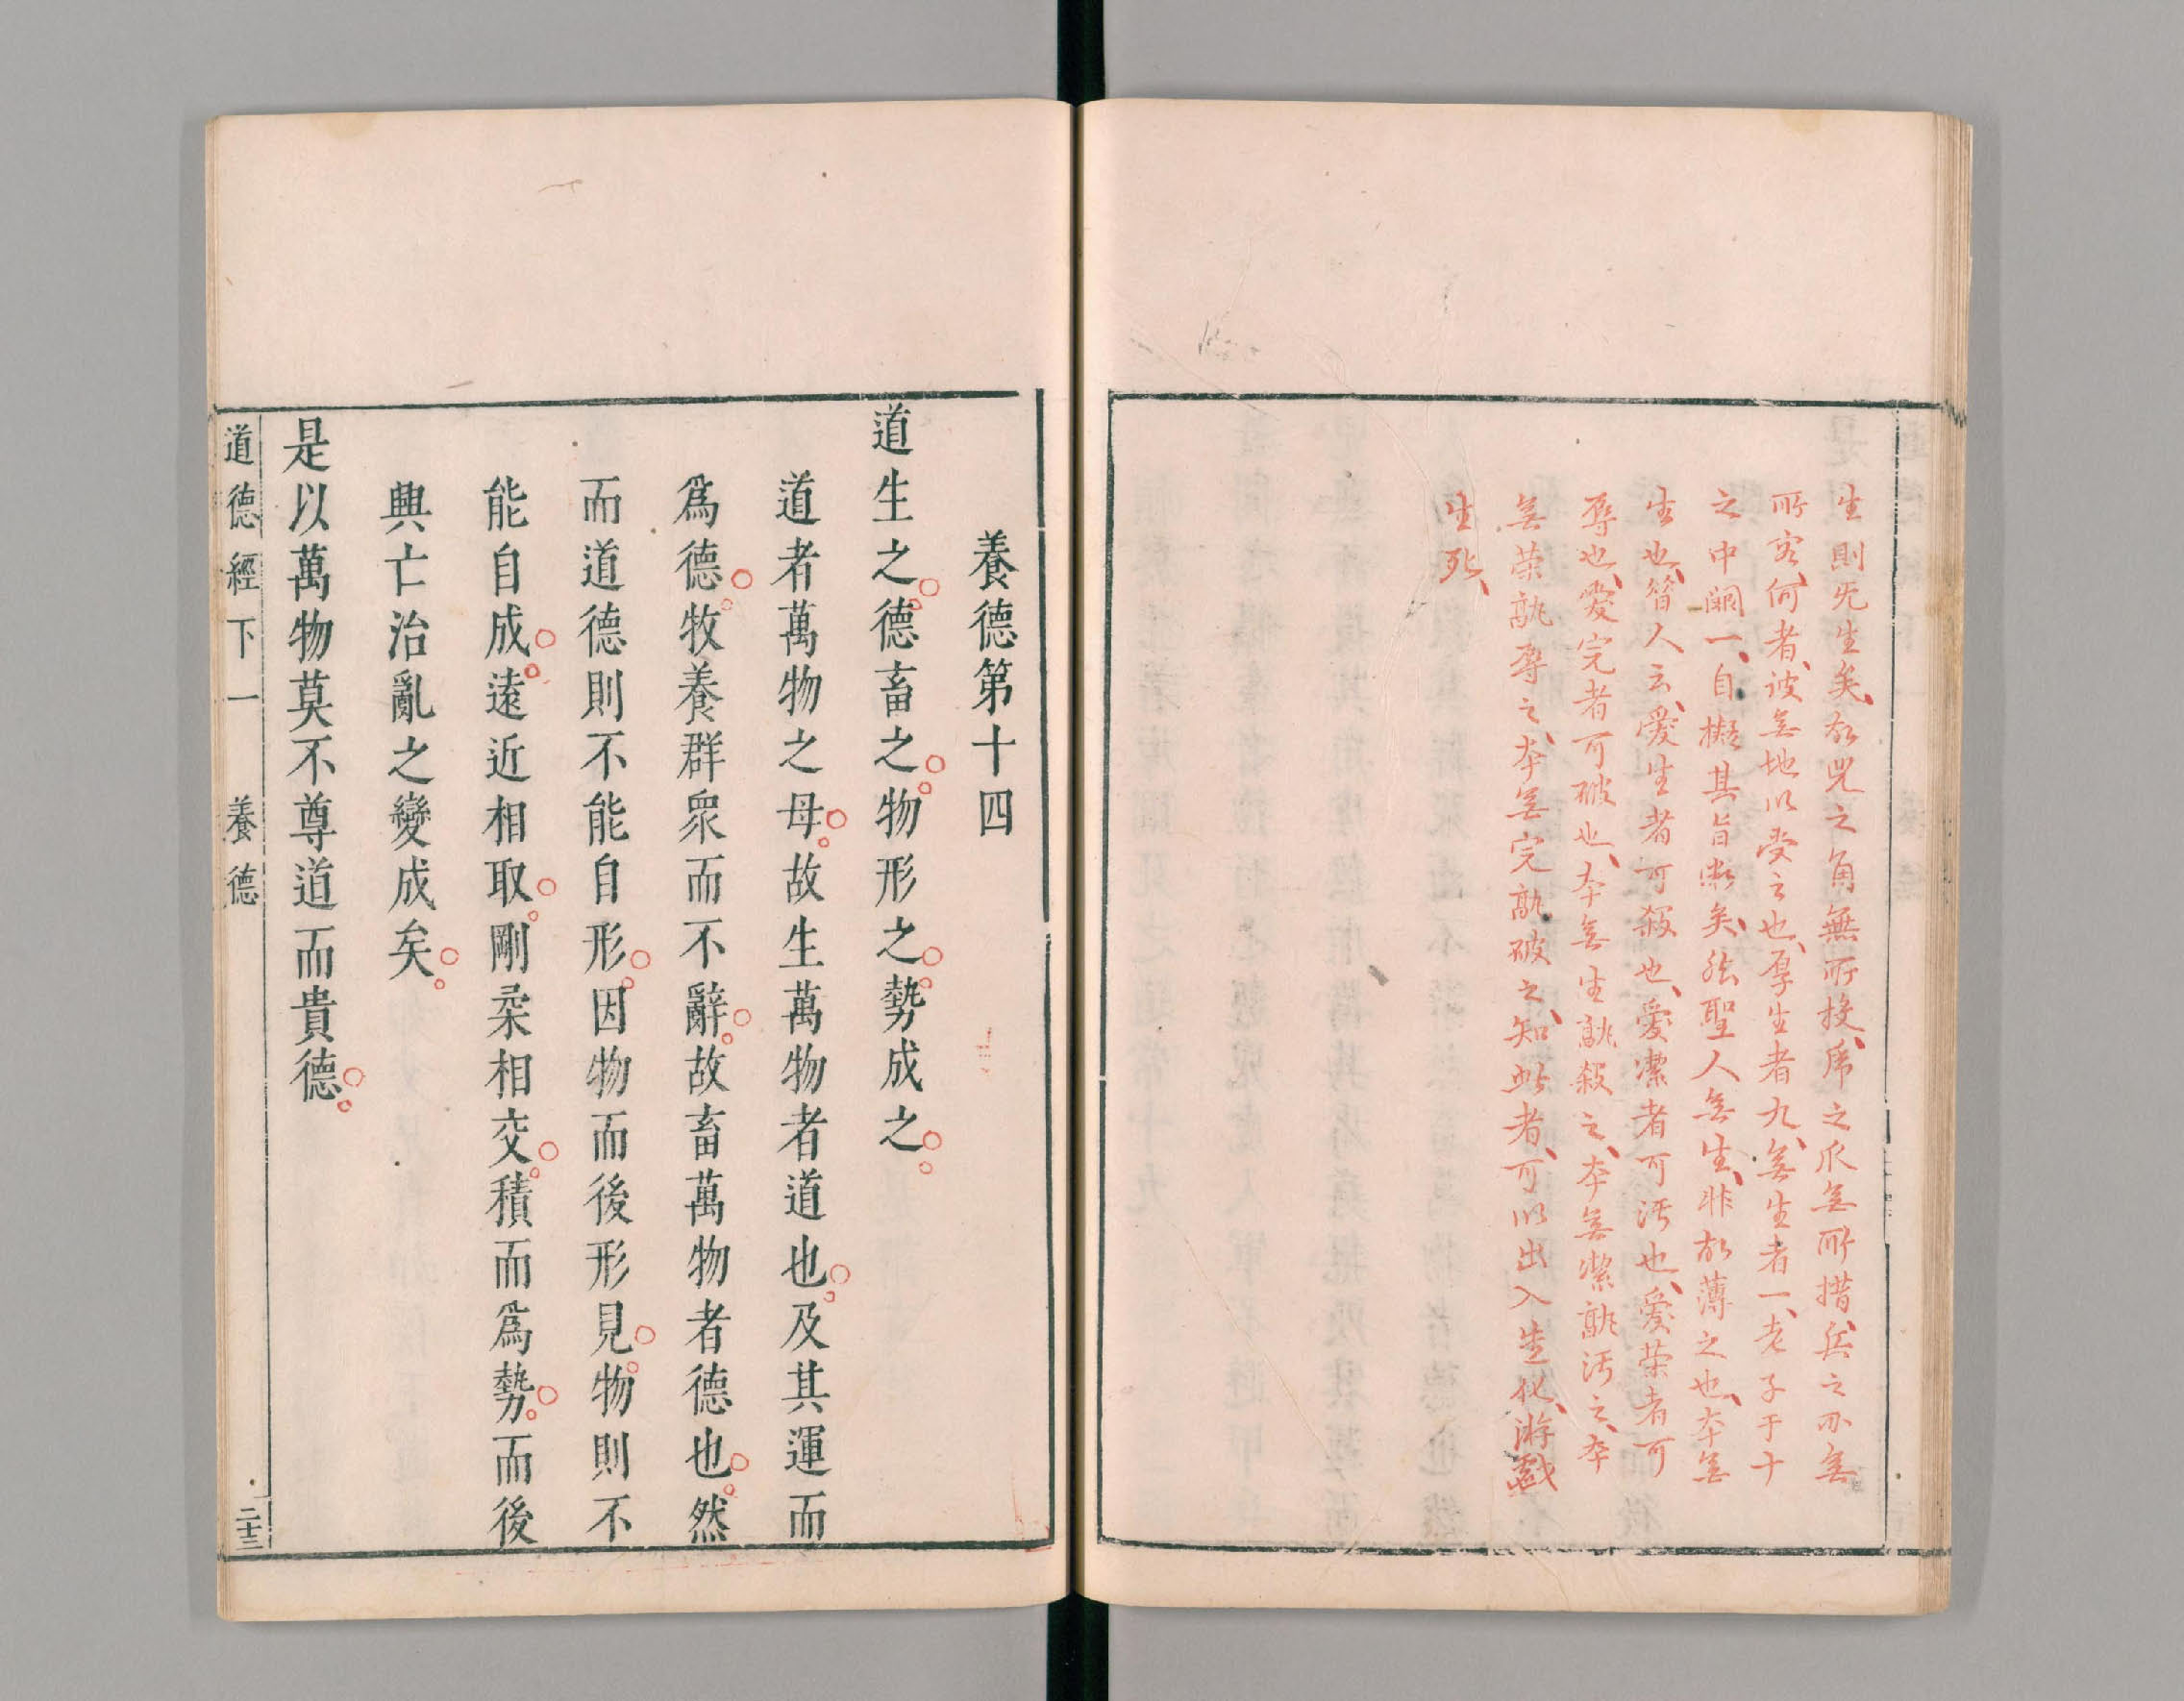 生則无生矣、故兕之角無所投、虎之爪無所措、兵之刃無
所容、何者、彼無地以受之也、厚生者九、無生者一、老子于十
之中闕一、自擬其旨微矣、然聖人無生、非故薄之也、本無
生也、昔人云、愛生者可殺也、愛潔者可汚也、愛榮者可
辱也、愛完者可破也、本無生孰殺之、本無潔孰汚之、本
無榮孰辱之、本無完孰破之、知此者、可以出入生化、游戲
生死、
養德第十四
道生之德畜之物形之勢成之
道者萬物之母故生萬物者道也及其運而
爲德牧養群衆而不辭故畜萬物者德也然
而道德則不能自形因物而後形見物則不
能自成遠近相取剛柔相交積而爲勢而後
興亡治亂之變成矣
是以萬物莫不尊道而貴德
道德經下一 養德 二十三